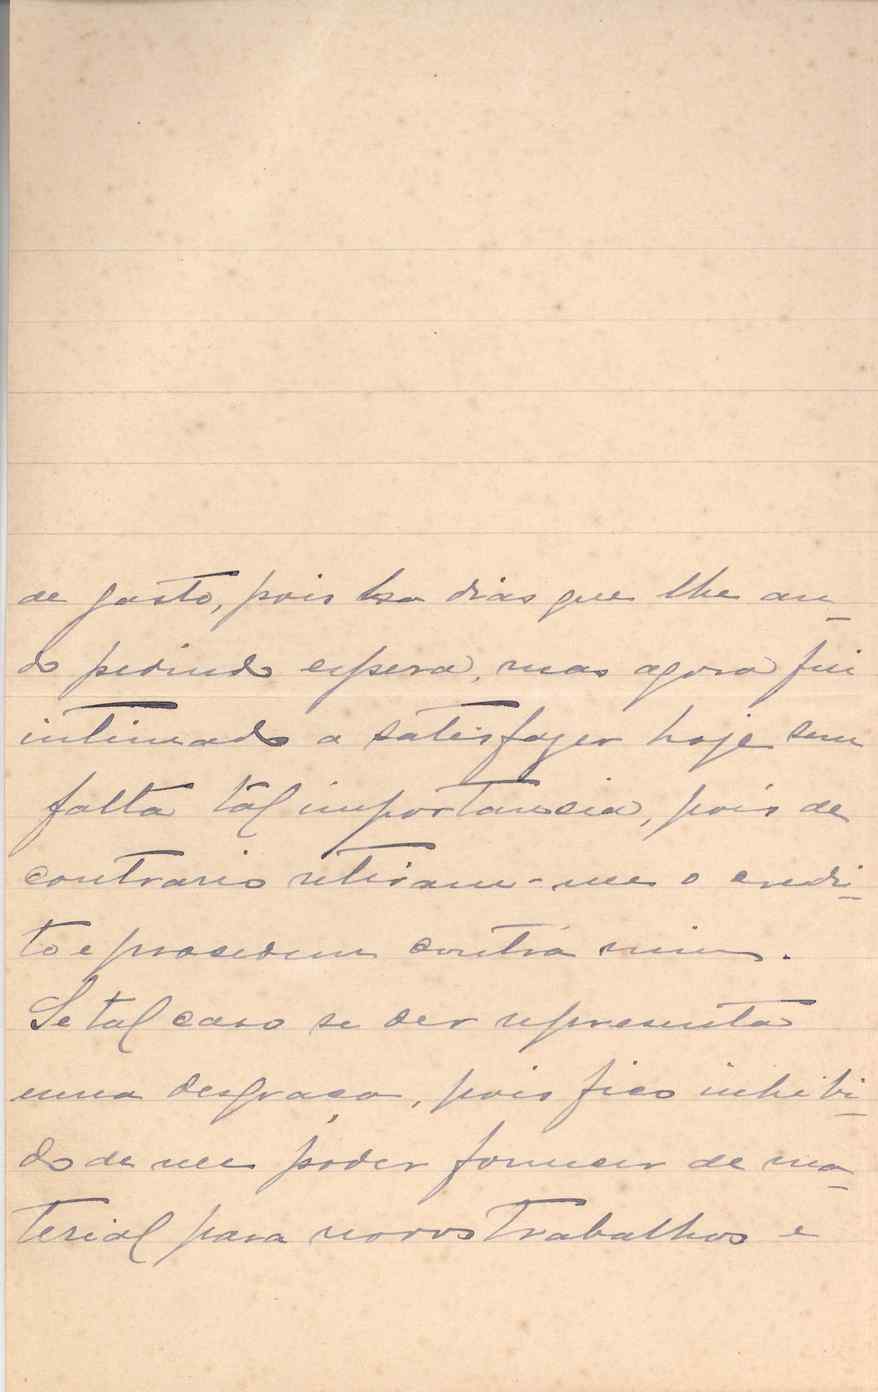 de gasto, pois ha dias que lhe an-
do pedindo espera, mas agora fui
intimado a satisfazer hoje sem
falta tál importancia, pois de
contrario retiram-me o credi-
to e procedem contra mim.
Se tal caso se der representa
uma desgraça, pois fico inhibi-
do de me poder fornecer de ma-
terial para novos trabalhos e